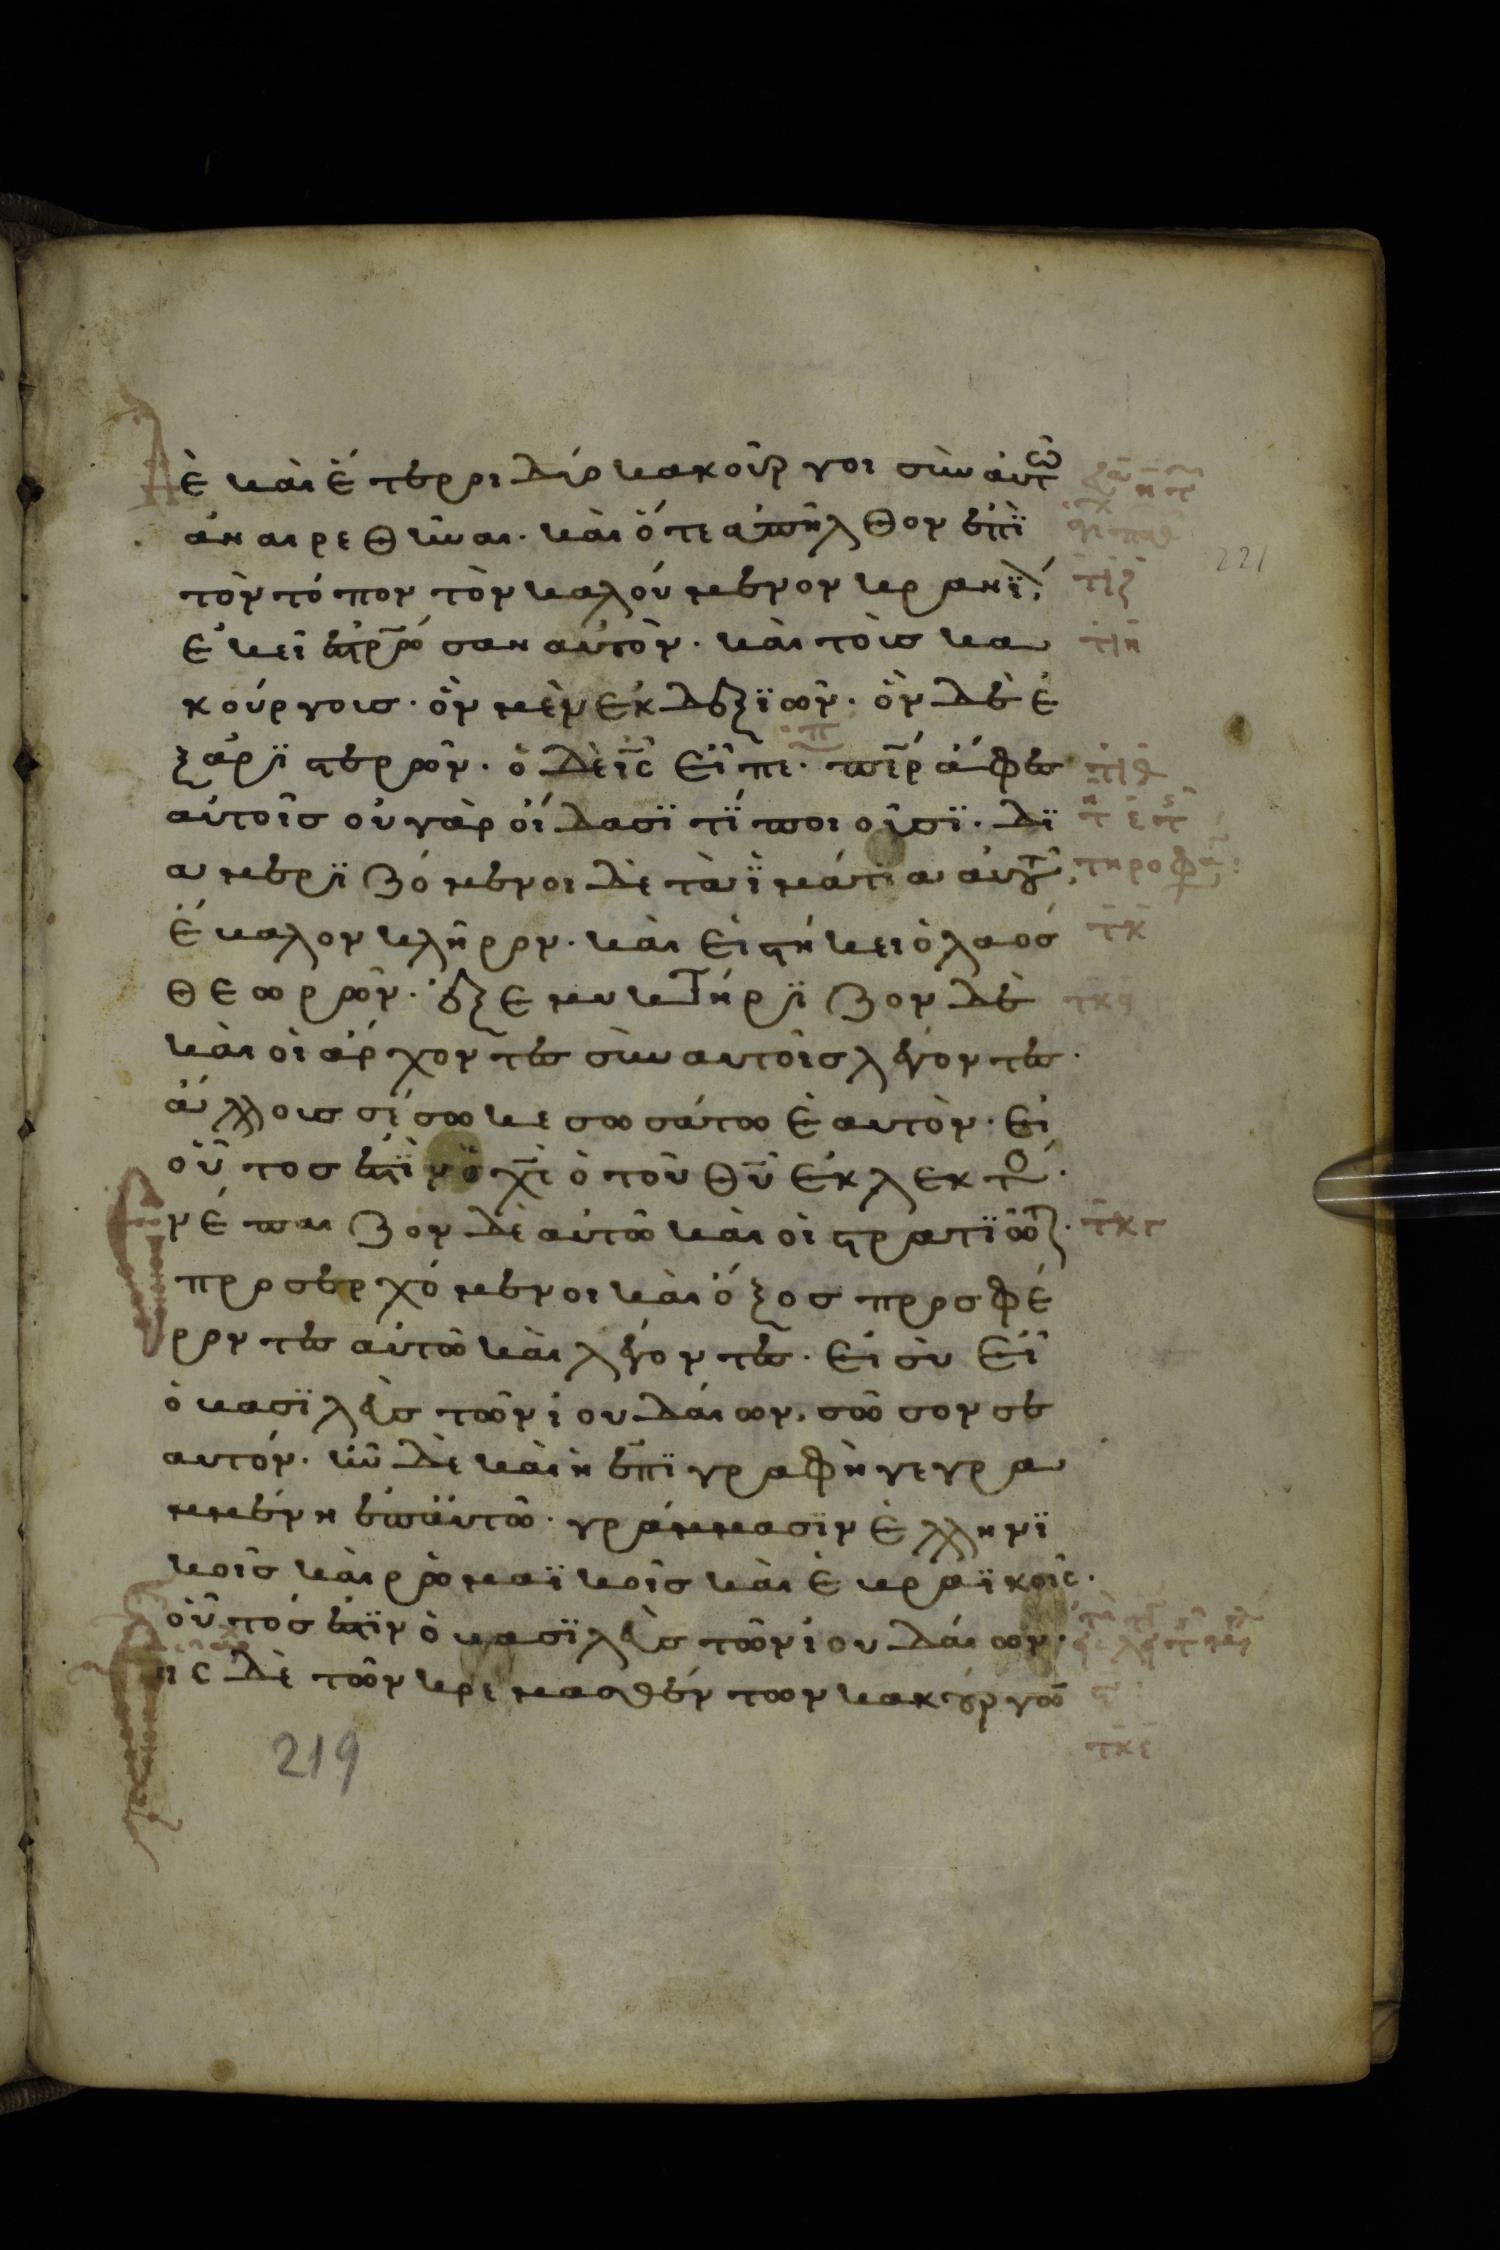 ὲ καὶ ἕτεροι δύο κακοῦργοι σὺν αὐτῶ
ἀναιρεθῆναι· καὶ ὅτε ἀπῆλθον ἐπῒ
τὸν τόπον τὸν καλούμενον κρανΐ,
ἐκεῖ ἐσταύρωσαν αὐτὸν· καὶ τοὺς κα
κούργους· ὃν μὲν ἐκ δεξϊῶν· ὃν δὲ ἐ
ξ ἀρϊστερῶν· ὁ δὲ ις εἶπε· περ ἄφες
αὐτοῖς οὐ γὰρ οἴδασϊ τΐ ποιοῦσϊ· δϊ
αμερϊζόμενοι δὲ τὰ ϊμάτια αὐτ,
ἔβαλον κλῆρον· καὶ εἱστήκει ὁ λαὸσ
θεωρῶν· ἐξεμυκτήρϊζον δὲ
καὶ οἱ ἄρχοντες σὺν αυτοῖσ λέγοντες·
ἄλλουσ ἔσωσε σωσάτω ἑαυτὸν· εἰ
οὗτοσ ἐστϊν ὁ χς ὁ τοῦ θυ ἐκλεκτο·
νέπαιζον δὲ αὐτῶ καὶ οἱ στρατϊῶτ·
προσερχόμενοι καὶ ὄξοσ προσφέ
ροντες αὐτῶ καὶ λέγοντες· εἰ σὺ εἶ
ὁ βασϊλεὺσ τῶν ἰουδάιων, σῶσον σε
αυτόν· ἦν δὲ καὶ ἡ ἐπϊγραφὴ γεγρα
μμένη ἐπ αὐτῶ· γράμμασϊν ἑλληνϊ
κοῖσ καὶ ρωμαϊκοῖσ καὶ ἑβραϊκοῖς·
οὗτόσ ἐστϊν ὁ βασϊλεὺσ τῶν ἰουδάιων·
ις δὲ τῶν κρεμασθέντων κακούργων
τιζ
τιη
τιθ
τκ
τκε
221
219